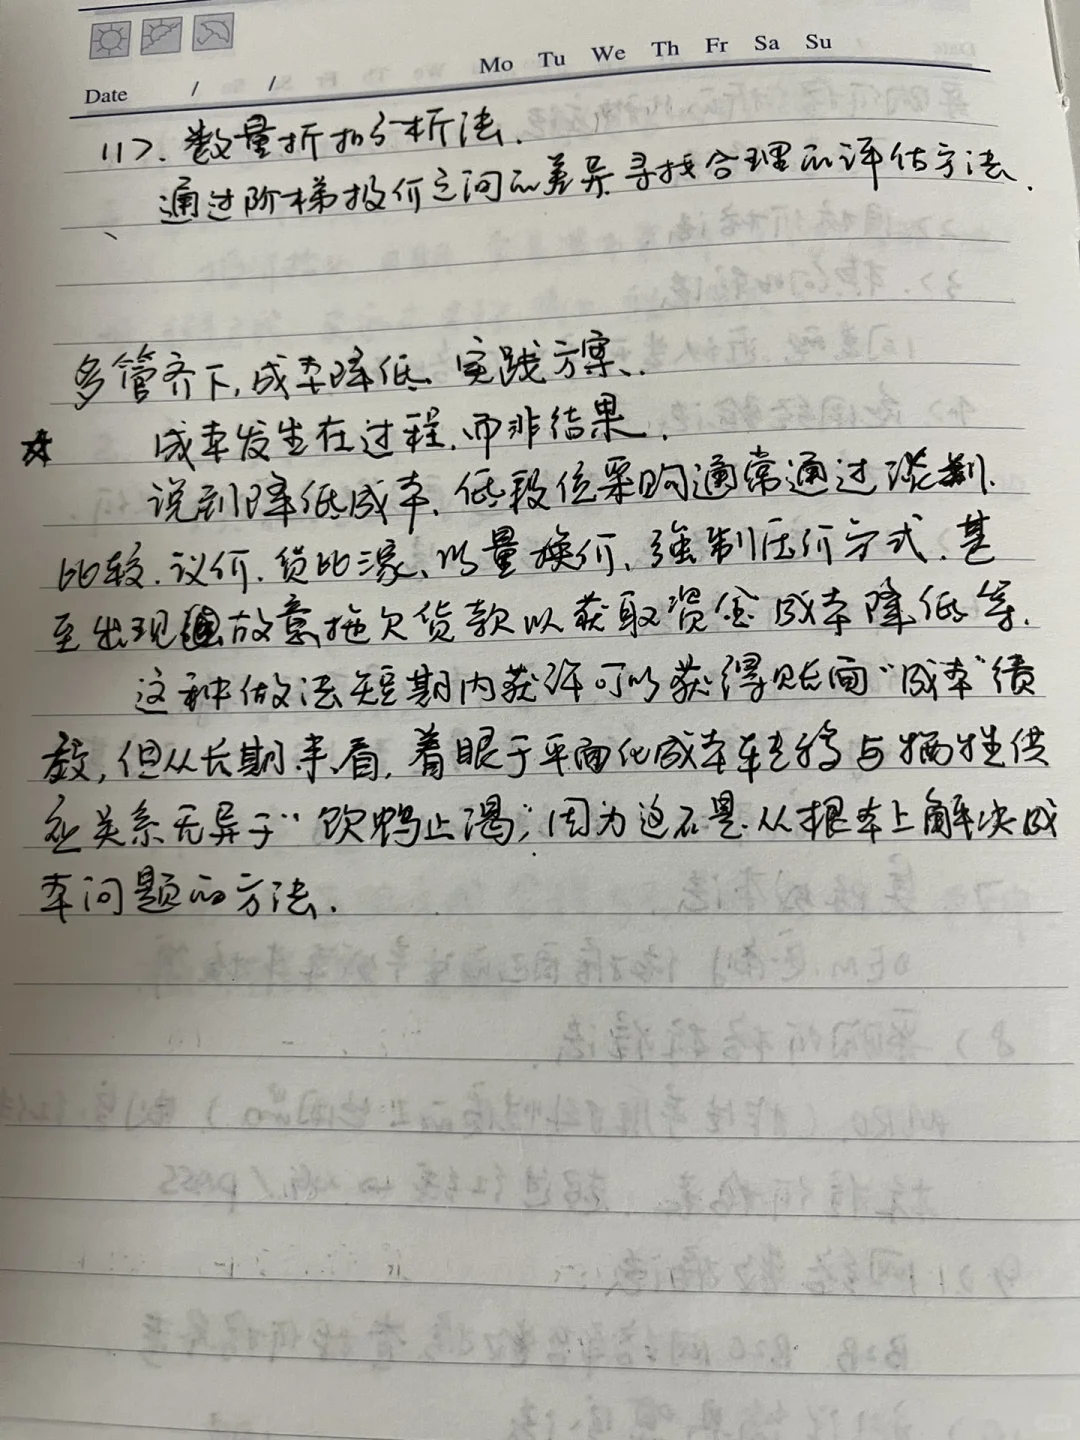 Mo Tu We Th Fr Sa Su
Date / /
11>. 数量折扣分析法.
通过阶梯报价之间的差异寻找合理的评估方法.
多管齐下,成本降低 实践方案.
☆ 成本发生在过程,而非结果.
说到降低成本,低段位采购通常通过谈判.
比较.议价.货比三家、以量换价、强制压价方式.甚
至出现故意拖欠货款以获取资金成本降低等.
这种做法短期内获许可以获得账面“成本”绩
效,但从长期来看,着眼于平面化成本转移与牺牲供
应关系无异于“饮鸩止渴”,因为这不是从根本上解决成
本问题的方法.